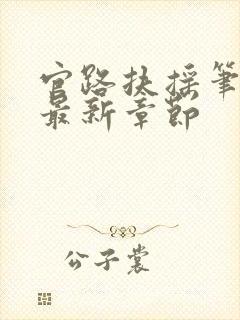 官路扶摇笔
最新章节
公子裳